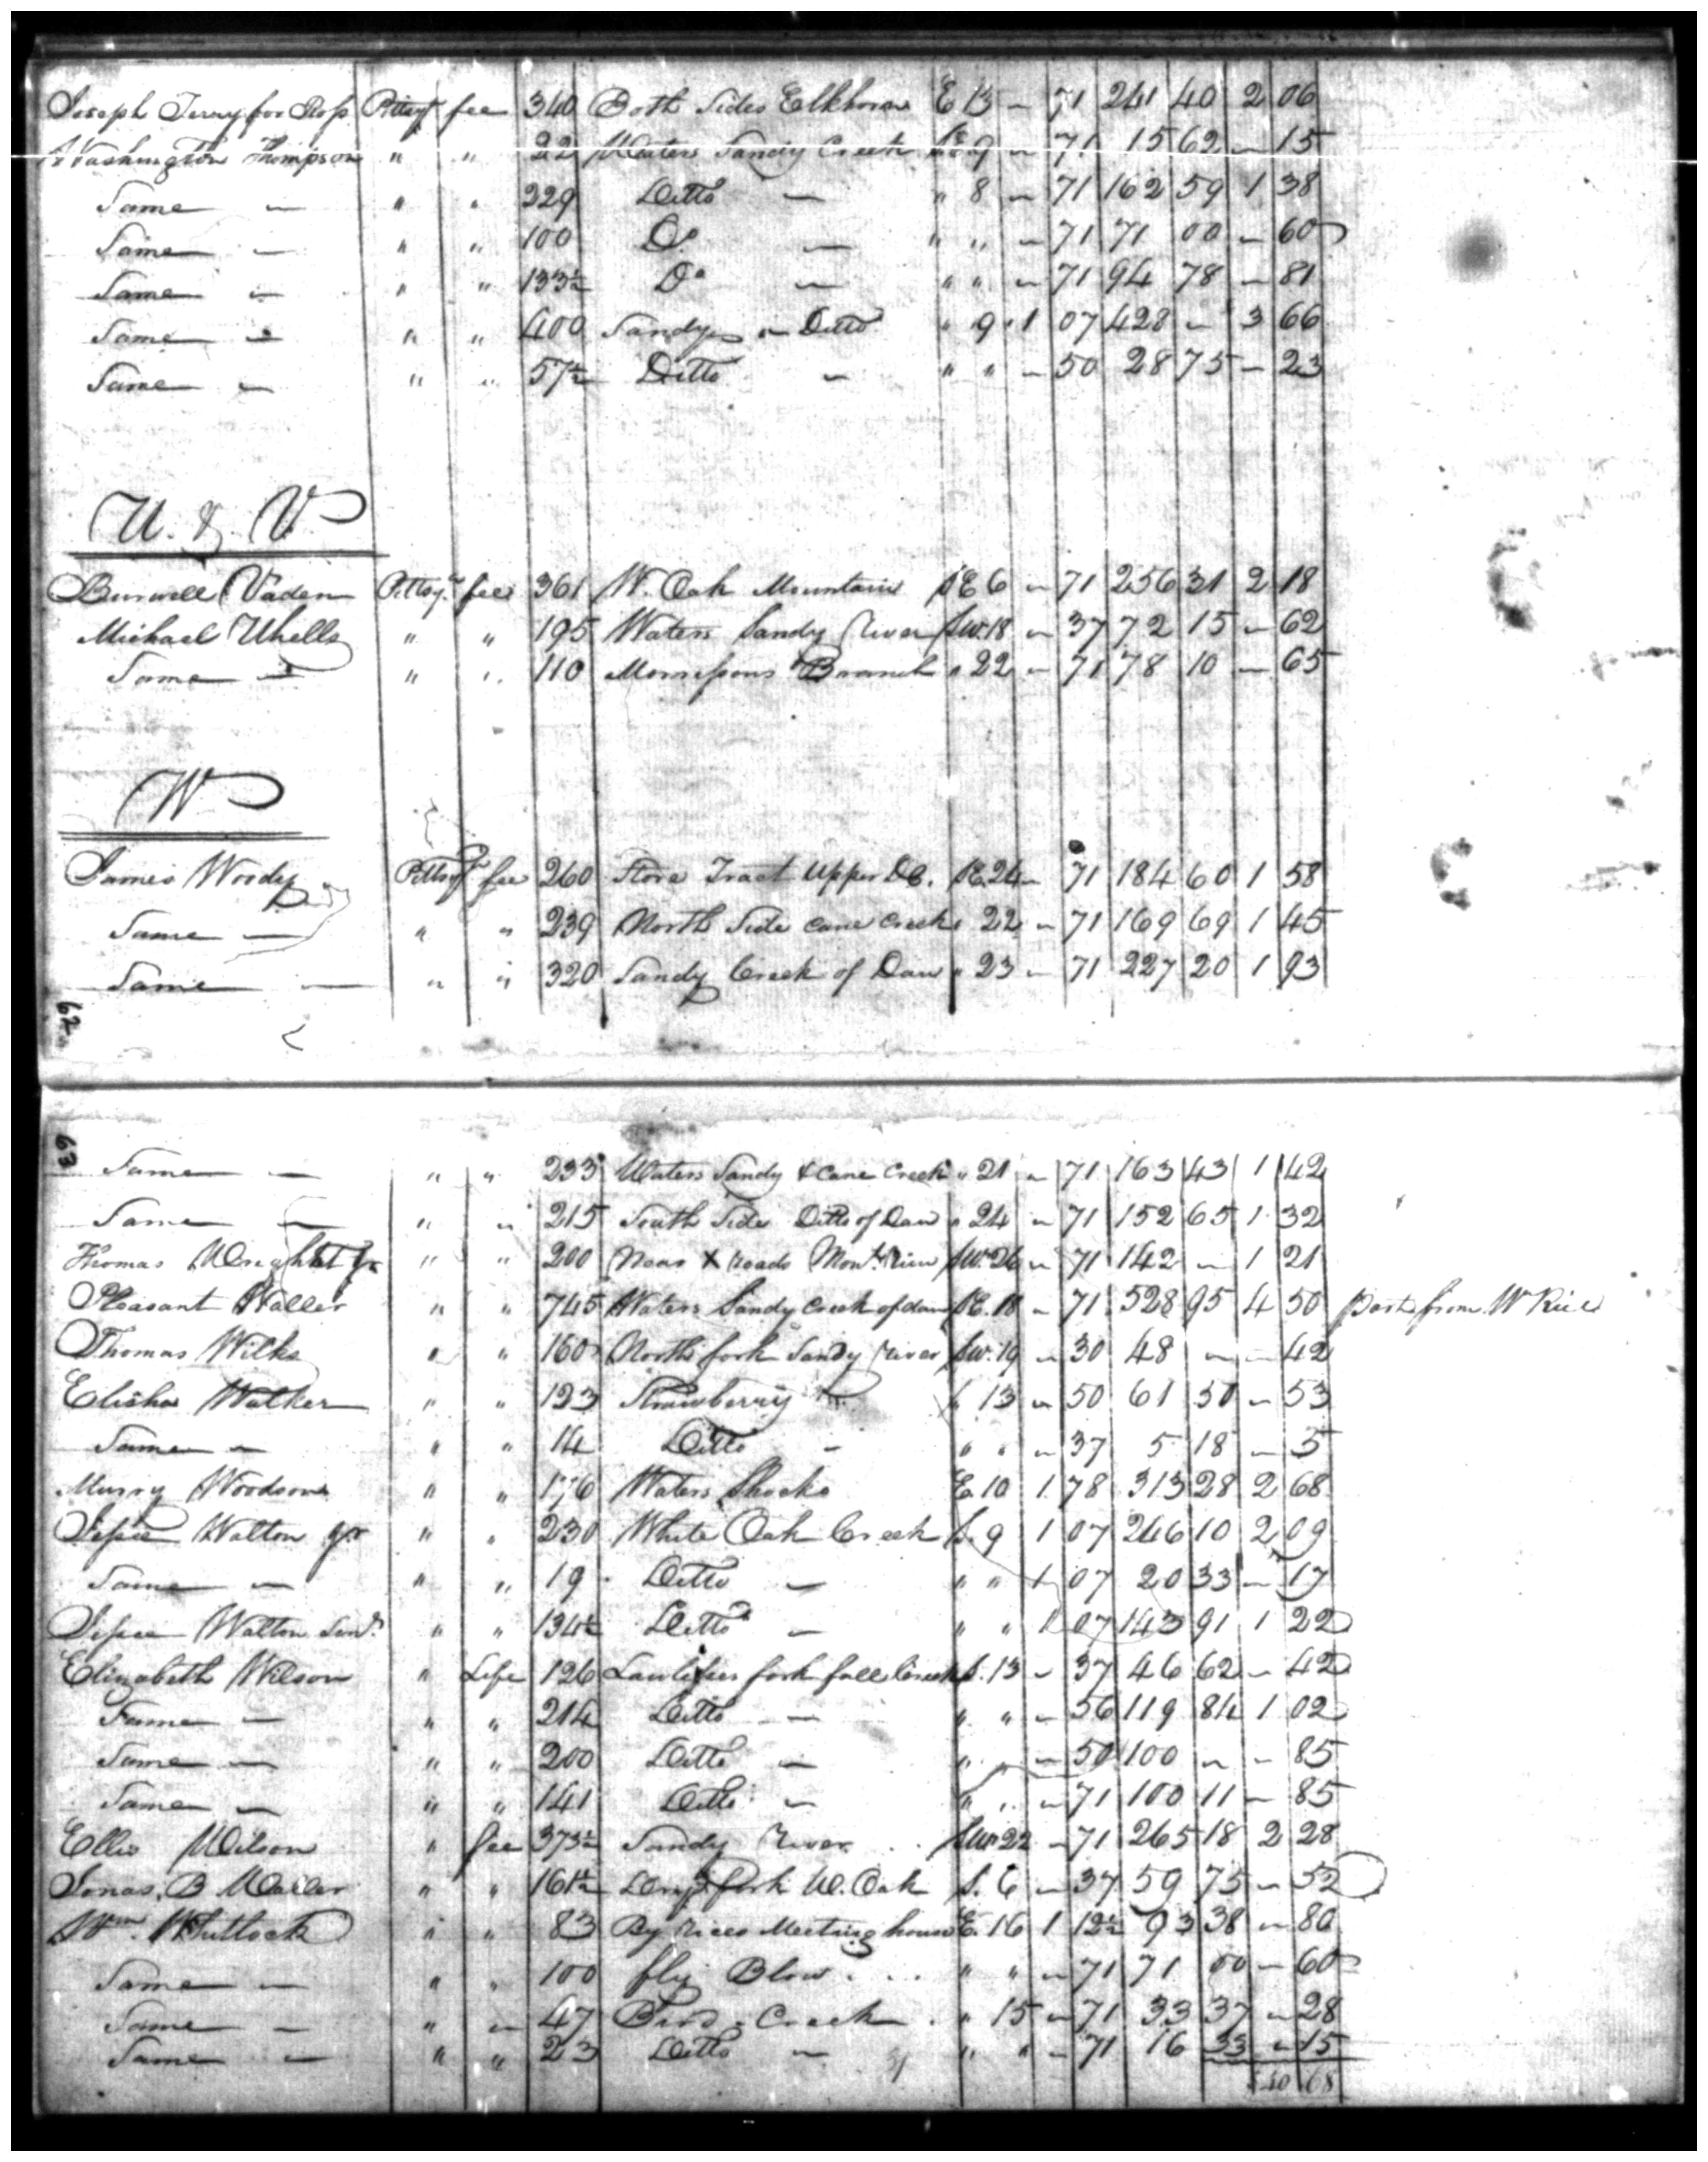 Joseph Terry for Ross Pittsya fee 340 Both Sides Elkhorn E 13 - 71 241 40 2 06
Washington Thompson " " 22 Waters Sandy Creek SE 9 - 71 15 62 - 15
Same - " " 229 Ditto - " 8 - 71 162 59 1 38
Same - " " 100 Do - " " - 71 71 00 - 60
Same - " " 133½ Do - " " - 71 94 78 - 81
Same - " " 400 Sandy - Ditto " 9 1 07 428 - 3 66
Same - " " 57½ Ditto - " " - 50 28 75 - 23
U. & V
Burwell Vaden Pittsya fee 361 W. Oak Mountain SE 6 - 71 256 31 2 18
Michael Uhells " " 195 Waters Sandy River SW. 18 - 37 72 15 - 62
Same - " " 110 Morrisons Branch " 22 - 71 78 10 - 65
W
James Woody Pittsya fee 260 Store Tract Upper SE. 24 - 71 184 60 1 58
Same - " " 239 North Side cane creek " 22 - 71 169 69 1 45
Same - " " 320 Sandy Creek of Dan " 23 - 71 227 20 1 93
62
63
Same - " " 233 Waters Sandy & cane Creek " 21 - 71 163 43 1 42
Same - " " 215 South Side Ditto of Dan " 24 - 71 152 65 1 32
Thomas Wright Jr " " 200 Near X roads Mont. View SW. 26 - 71 142 - 1 21
Pleasant Waller " " 745 Waters Sandy Creek of dan SE. 18 - 71 528 95 4 50 Part from Wm Rice
Thomas Wilks " " 160 North fork Sandy River SW. 19 - 30 48 - - 42
Elisha Walker " " 123 Strawberry S 13 - 50 61 50 - 53
Same - " " 14 Ditto - " " - 37 5 18 - 5
Murry Woodson " " 176 Waters Shocko E. 10 1 78 313 28 2 68
Jesse Walton Jr " " 230 White Oak Creek S. 9 1 07 246 10 2 09
Same - " " 19 Ditto - " " 1 07 20 33 - 17
Jesse Walton Senr " " 134½ Ditto - " " 1 07 143 91 1 22
Elizabeth Wilson " Life 126 fork fall Creek S. 13 - 37 46 62 - 42
Same - " " 214 Ditto - " " - 56 119 84 1 02
Same - " " 200 Ditto - " " - 50 100 - - 85
Same - " " 141 Ditto - " " - 71 100 11 - 85
Ellis Wilson " fee 373½ Sandy River SW 22 - 71 265 18 2 28
Jonas. B Waller " " 161½ Long fork W. Oak S. 6 - 37 59 75 - 52
Wm. Whitlock " " 83 By rices Meeting house E. 16 1 12½ 93 38 - 80
Same - " " 100 fly Blow " " - 71 71 00 - 60
Same - " " 47 Bird Creek " 15 - 71 33 37 - 28
Same - " " 23 Ditto - " " - 71 16 33 - 15
40 68